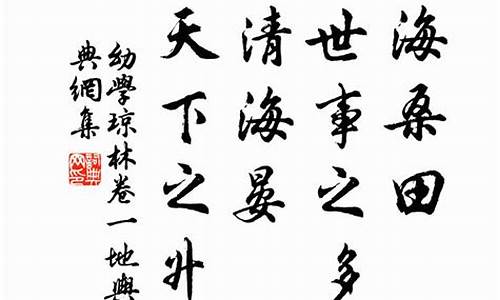 海桑田
世事之多
清海晏
天下之升
幼學琼林卷一地輿
典網集